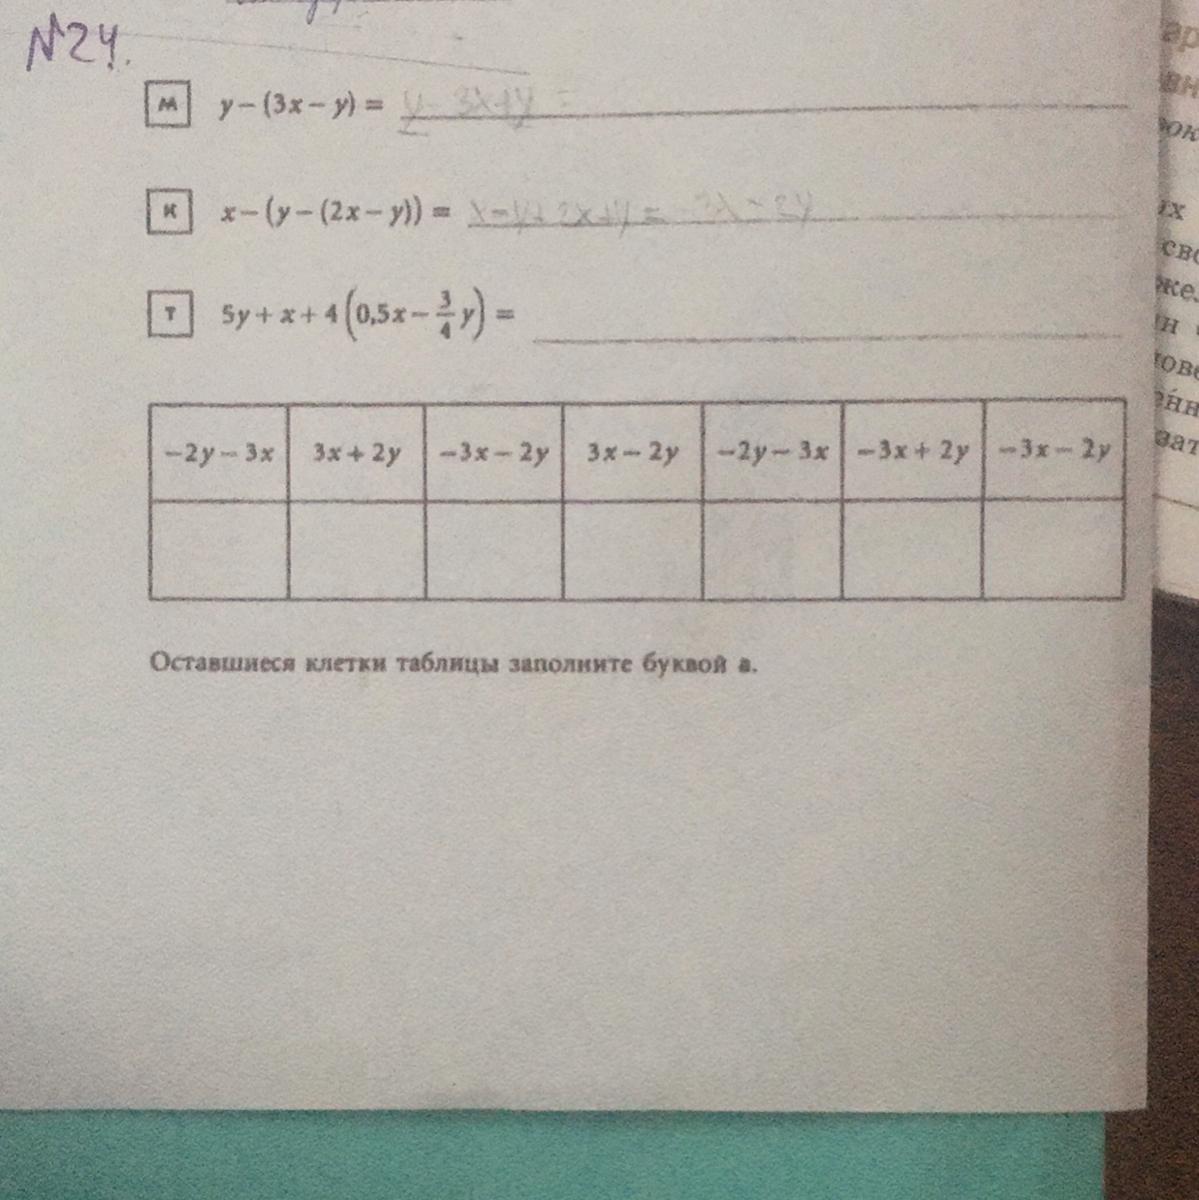 №24.
м y − (3x − y) = y − 3x + y =
к x − (y − (2x − y)) = x − y + 2x + y = 3x − 2y
т 5y + x + 4(0,5x − 3/4 y) =
−2y − 3x 3x + 2y −3x − 2y 3x − 2y −2y − 3x −3x + 2y −3x − 2y
Оставшиеся клетки таблицы заполните буквой а.